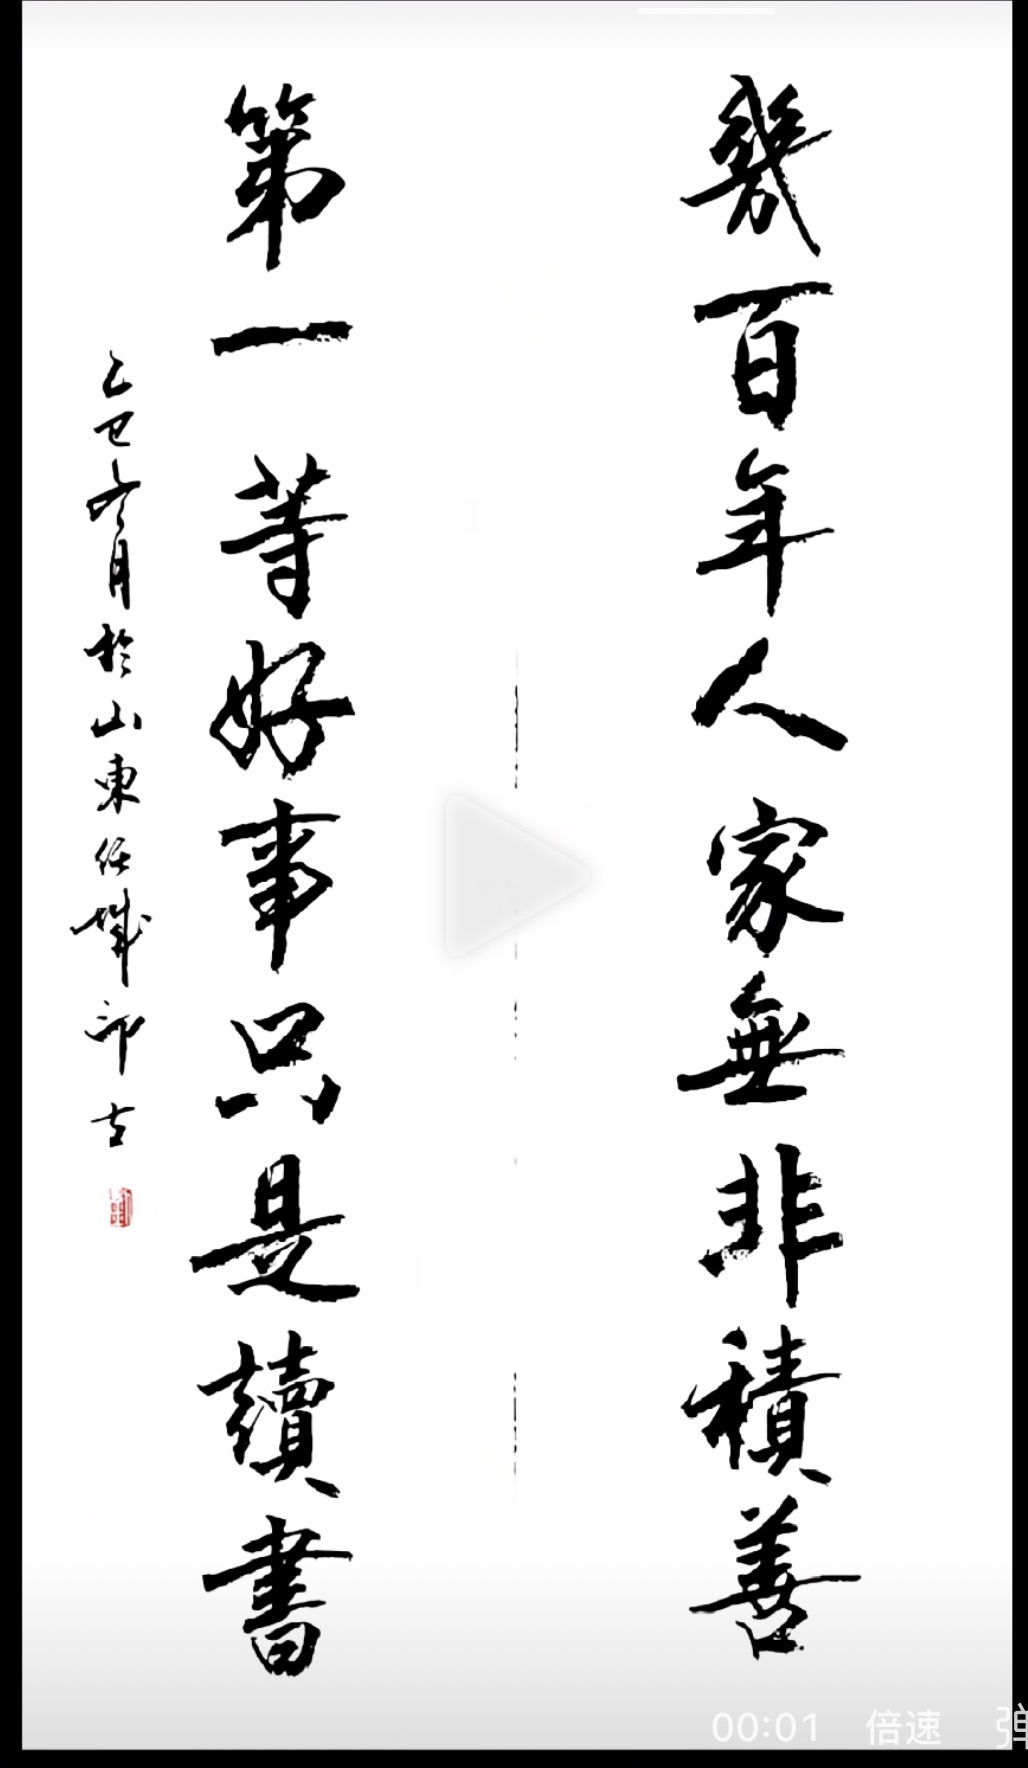 幾百年人家無非積善
第一等好事只是讀書
乙巳冬月於山東任城印古
00:01 倍速 弹